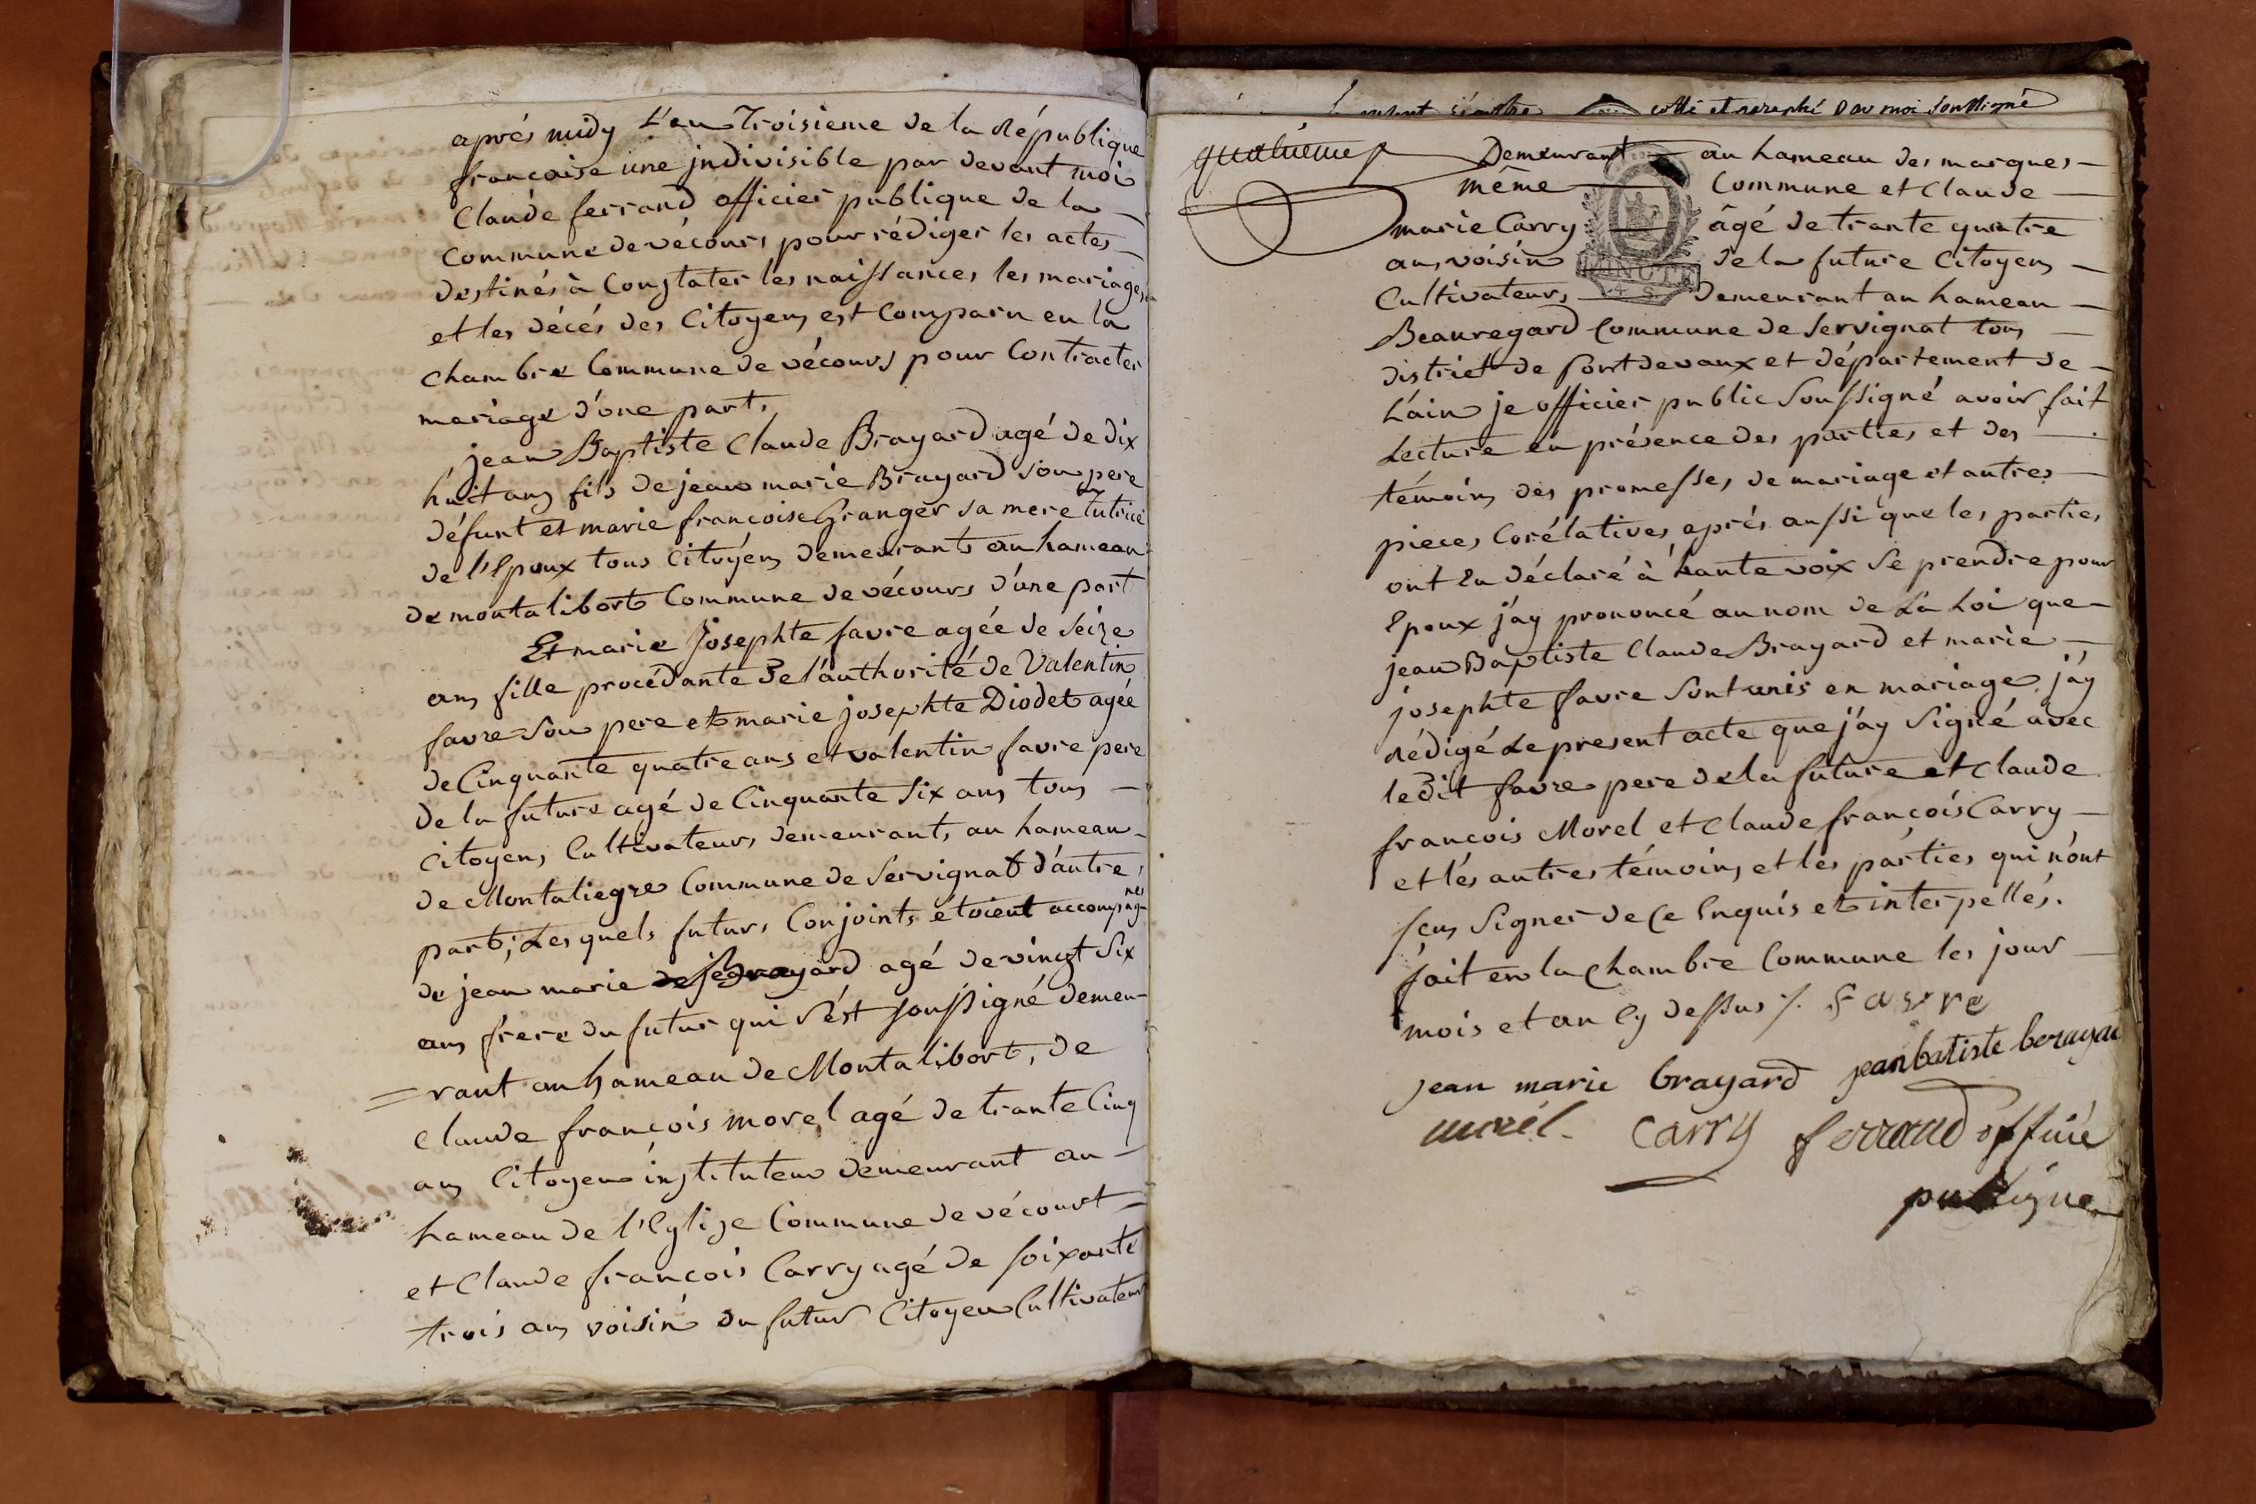 après midy L'an Troisieme de la république
francoise une jndivisible par devant moi
Claude ferrand officier publique de la
Commune de vécours pour rédiger les actes
destinés à Constater les naissances les mariages
et les décés des Citoyens est Comparu en la
chambre Commune de vécours pour Contracter
mariage d'une part,
jean Baptiste Claude Brayard agé de dix
huit ans fils de jean marie Brayard son pere
défunt et marie francoise Granger sa mere tutrice
de l'Epoux tous Citoyens demeurants au hameau
de montalibort Commune de vécours d'une part
Et marie Josephte favre agée de seize
ans fille procédante de l'authorité de Valentin
favre son pere et marie josephte Diodet agée
de Cinquante quatre ans et valentin favre pere
de la future agé de Cinquante six ans tous
Citoyens Cultivateurs demeurants au hameau
de Montaliegre Commune de Servignat d'autre
part; Lesquels futurs Conjoints étoient accompag
nés
de jean marie Brayard agé de vingt six
ans frere du futur qui s'ést soussigné demeu-
= rant au hameau de Montalibort, de
Claude françois morel agé de trante Cinq
ans Citoyen instituteur demeurant au
hameau de l'Eglize Commune de vécourt
et Claude françois Carry agé de soixante
trois ans voisin du futur Citoyen Cultivateur
cotté et paraphé par moi soussigné
Demeurant au hameau des marques
même Commune et Claude
marie Carry âgé de trante quatre
ans, voisin de la future Citoyens
Cultivateurs demeurant au hameau
MINUTE
4 S
Beauregard Commune de Servignat tous
district de pont devaux et département de
L'ain je officier public soussigné avoir fait
Lecture en présence des parties et des
témoins des promesses de mariage et autres
pieces Corélatives après aussi que les parties
ont Eu déclaré à haute voix se prendre pour
Epoux j'ay prononcé au nom de La Loi que
jean Baptiste Claude Brayard et marie
josephte favre sont unis en mariage, j'ay
rédigé Le present acte que j'ay signé avec
ledit favre pere de la future et Claude
françois Morel et Claude françois Carry
et lés autres témoins et les parties qui n'ont
scus signer de Ce Enquis et interpellés.
fait en la Chambre Commune les jour
mois et an Cy dessus /. favre
jean marie brayard jeanbatiste berayar
morél Carry ferrand offiié
publique